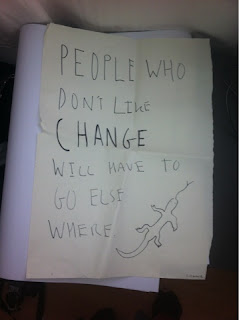 PEOPLE WHO
DON'T LIKE
CHANGE
WILL HAVE TO
GO ELSE
WHERE